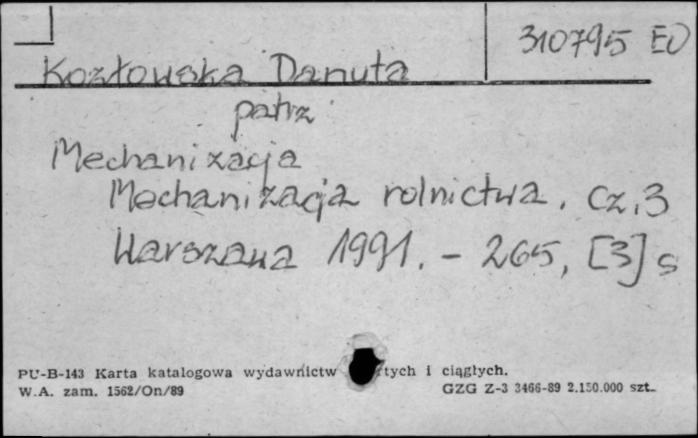 310795 EO
Kozłowska Danuta
patrz
Mechanizacja
Mechanizacja rolnictwa. Cz. 3
Warszawa 1991. - 265, [3] s
PU-B-143 Karta katalogowa wydawnictw rtych i ciągłych.
W.A. zam. 1562/On/89 GZG Z-3 3466-89 2.150.000 szt.